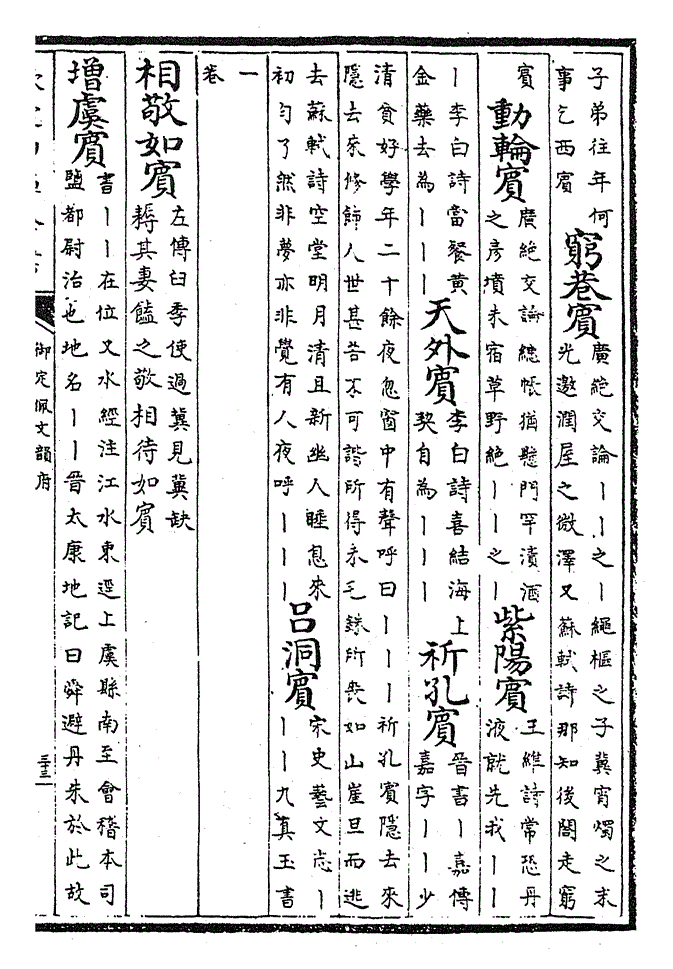 子弟往年何
事乞西賓
窮巷賓
廣絶交論丨丨之丨繩樞之子冀宵燭之末
光邀潤屋之微澤又蘇軾詩那知後閤走窮
賓
動輪賓
廣絶交論繐帳猶懸門罕漬酒
之彦墳未宿草野絶丨丨之丨
紫陽賓
王維詩常恐丹
液就先我丨丨
丨李白詩當餐黄
金藥去為丨丨丨
天外賓
李白詩喜結海上
契自為丨丨丨
祈孔賓
晉書丨嘉傳
嘉字丨丨少
清貧好學年二十餘夜忽窗中有聲呼曰丨丨丨祈孔賓隱去來
隱去來修飾人世甚苦不可諧所得未毛銖所喪如山崖旦而逃
去蘇軾詩空堂明月清且新幽人睡息來
初勻了然非夢亦非覺有人夜呼丨丨丨
吕洞賓
宋史藝文志丨
丨丨九真玉書
一
卷
相敬如賓
左傳臼季使過冀見冀缺
耨其妻饁之敬相待如賓
増虞賓
書丨丨在位又水經注江水東逕上虞縣南至會稽本司
鹽都尉治也地名丨丨晉太康地記曰舜避丹朱於此故
御定佩文韻府
三十三